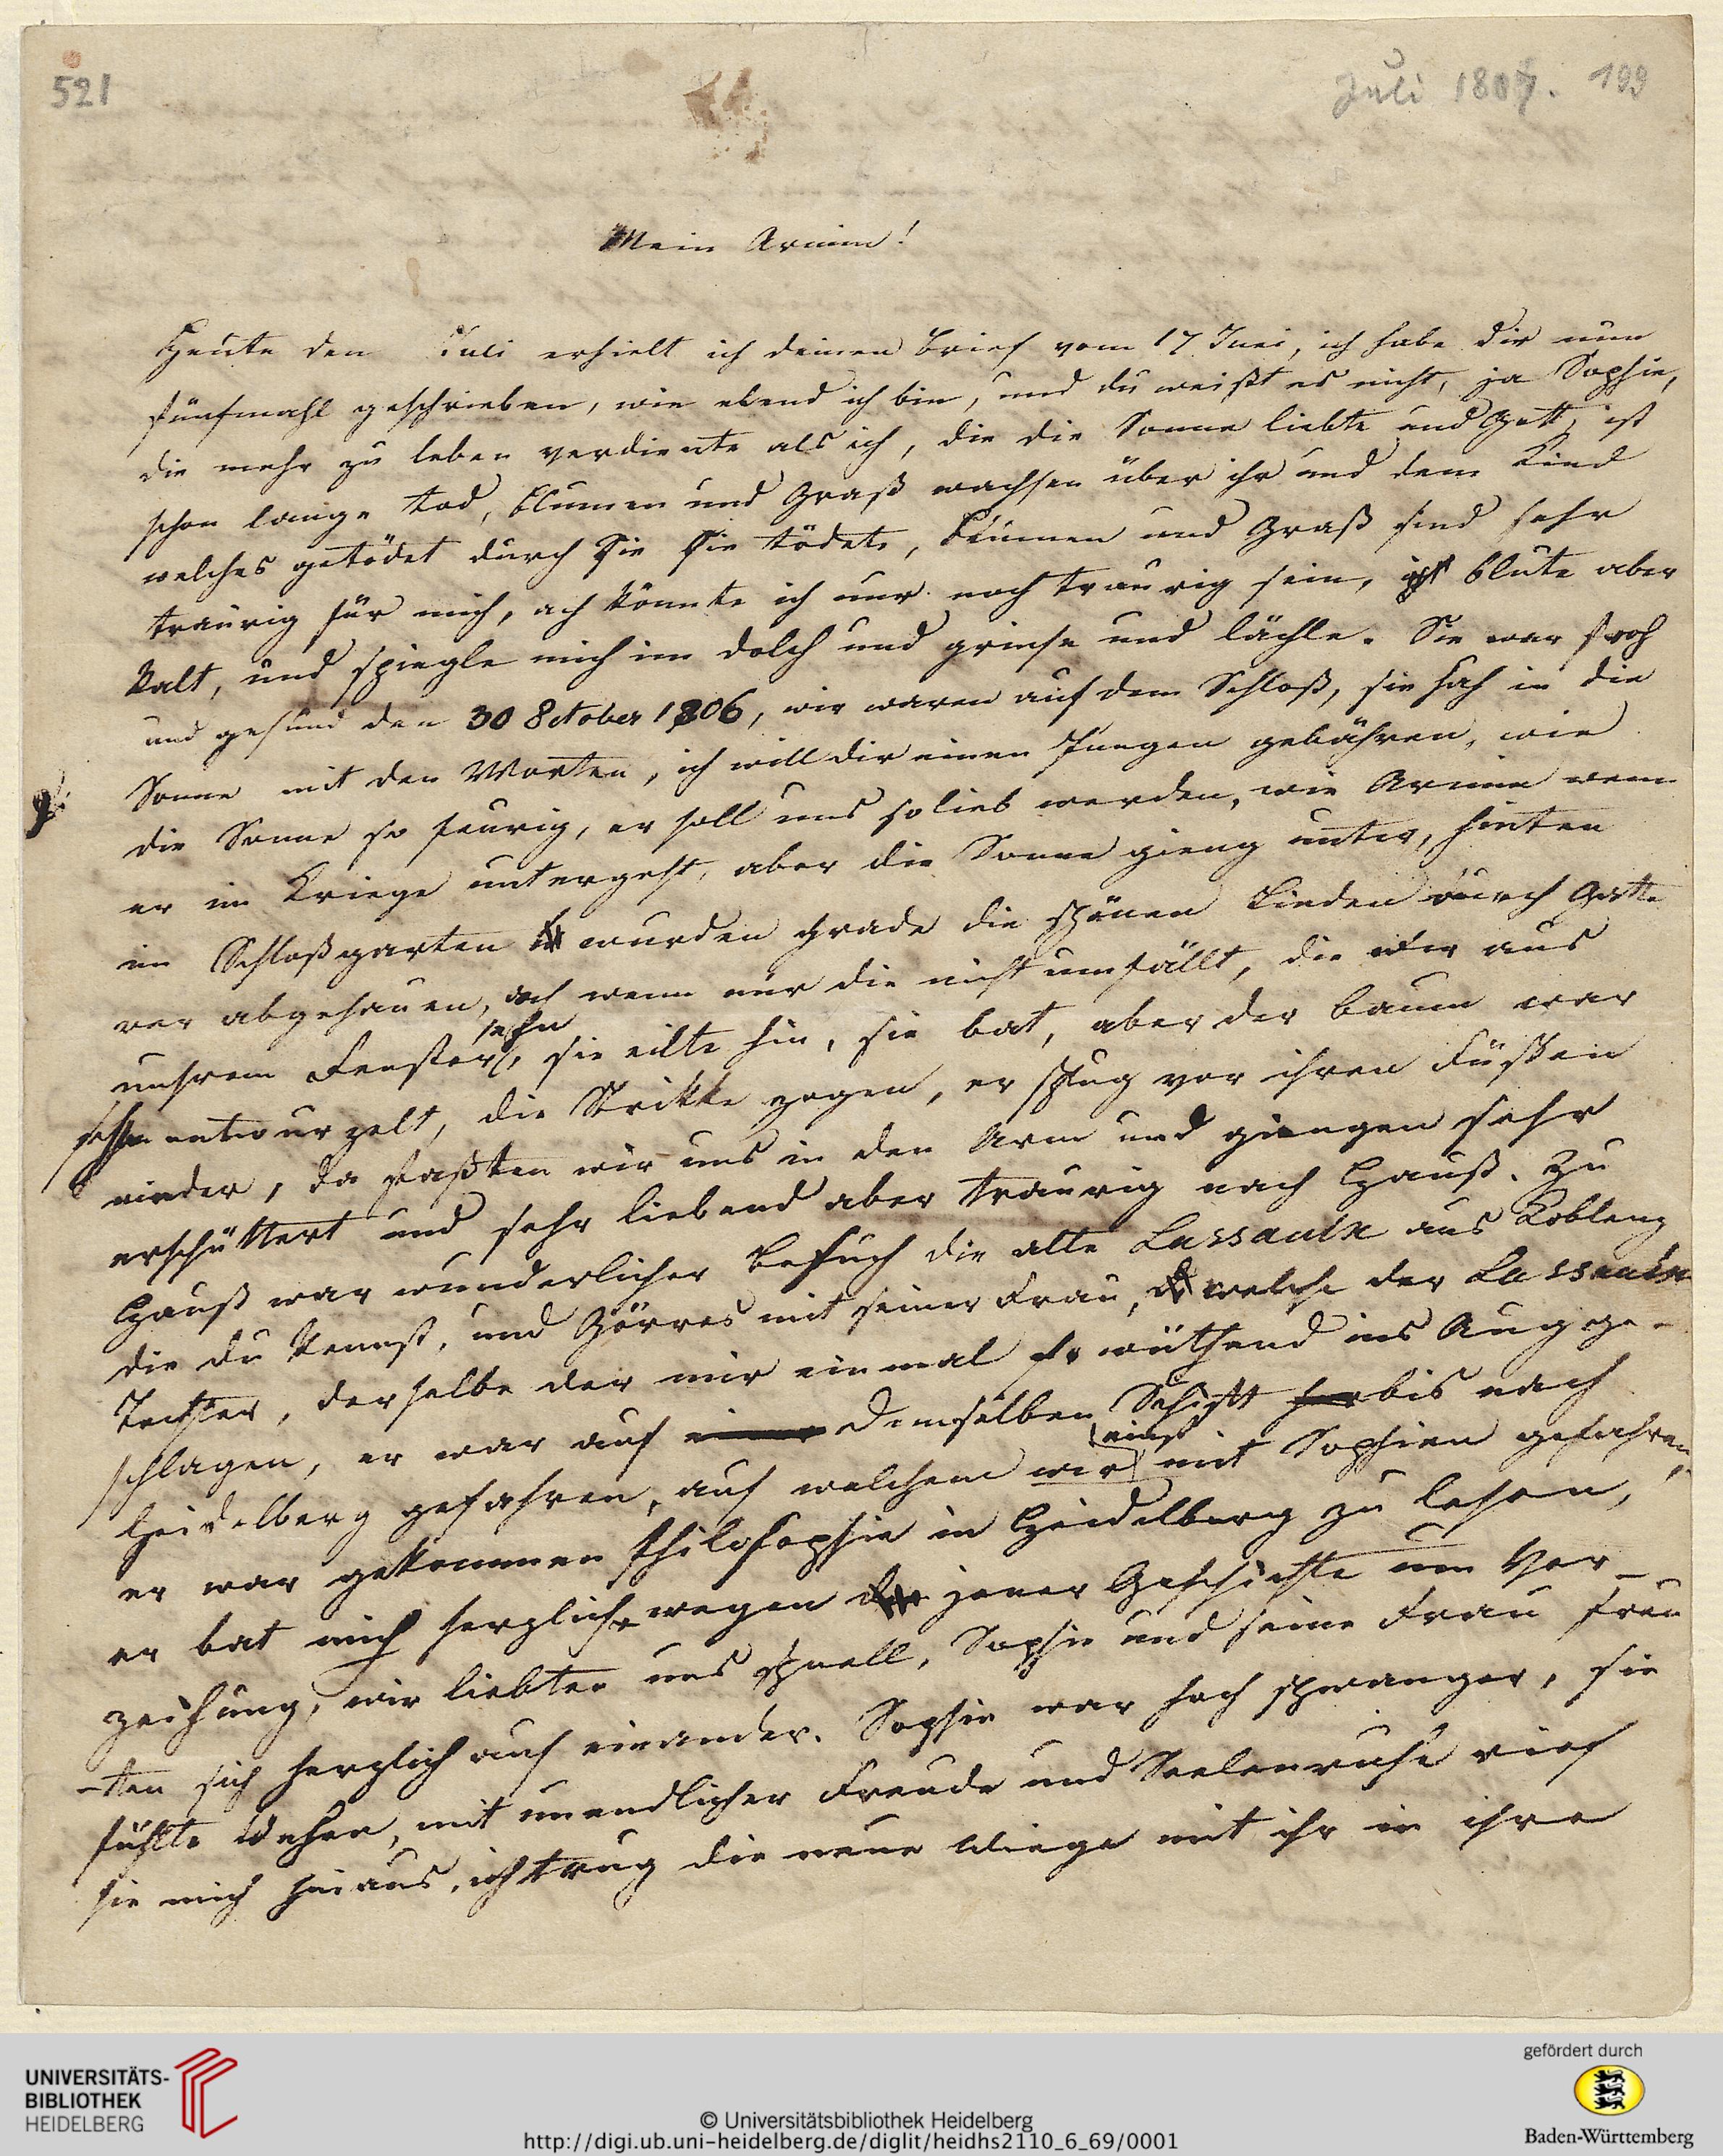 521
Juli 1807. 199
Mein Arnim!
Heute den Juli erhielt ich deinen Brief vom 17 Juni, ich habe dir nun
fünfmahl geschrieben, wie elend ich bin, und du weißt es nicht, ja Sophie,
die mehr zu leben verdiente als ich, die die Sonne liebte und Gott, ist
schon lange tod, Blumen und Graß wachsen über ihr und dem Kind
welches getödet durch Sie Sie tödete, Blumen und Graß sind sehr
traurig für mich, ach könnte ich nur noch traurig sein, ich blute aber
kalt, und spiegle mich im Dolch und grinse und lächle. Sie war froh
und gesund den 30 8ctober 1806, wir waren auf dem Schloß, sie sah in die
Sonne mit den Worten, ich will dir einen Jungen gebähren, wie
die Sonne so feurig, er soll uns so lieb werden, wie Arnim wenn
er im Kriege untergeht, aber die Sonne gieng unter, hinten
im Schloßgarten wurden grade die schönen Linden durch Gatte
rer abgehauen, ach wenn nur die nicht umfällt, die wir aus
unsrem Fenster sehn, sie eilte hin, sie bat, aber der Baum war
schon entwurzelt, die Strikke zogen, er schlug vor ihren Füßen
nieder, da faßten wir uns in den Arm und giengen sehr
erschüttert und sehr liebend aber traurig nach Hauß. Zu
Hauß war wunderlicher Besuch die alte Lassaulx aus Koblenz
die du kennst, und Görres mit seiner Frau, welche der Lassaulx
Tochter, derselbe der mir einmal so wüthend ins Aug ge-
schlagen, er war auf demselben Schiff bis nach
Heidelberg gefahren, auf welchem wir einst mit Sophien gefahren,
er war gekommen Philosophie in Heidelberg zu lesen,
er bat mich herzlich wegen jener Geschichte um Ver-
zeihung, wir liebten uns schnell, Sophie und seine Frau freu
-ten sich herzlich auf einander. Sophie war hoch schwanger, sie
fühlte Wehen, mit unendlicher Freude und Seelenruhe rief
sie mich hinaus, ich trug die neue Wiege mit ihr in ihre
UNIVERSITÄTS-
BIBLIOTHEK
HEIDELBERG
© Universitätsbibliothek Heidelberg
http://digi.ub.uni-heidelberg.de/diglit/heidhs2110_6_69/0001
gefördert durch
Baden-Württemberg